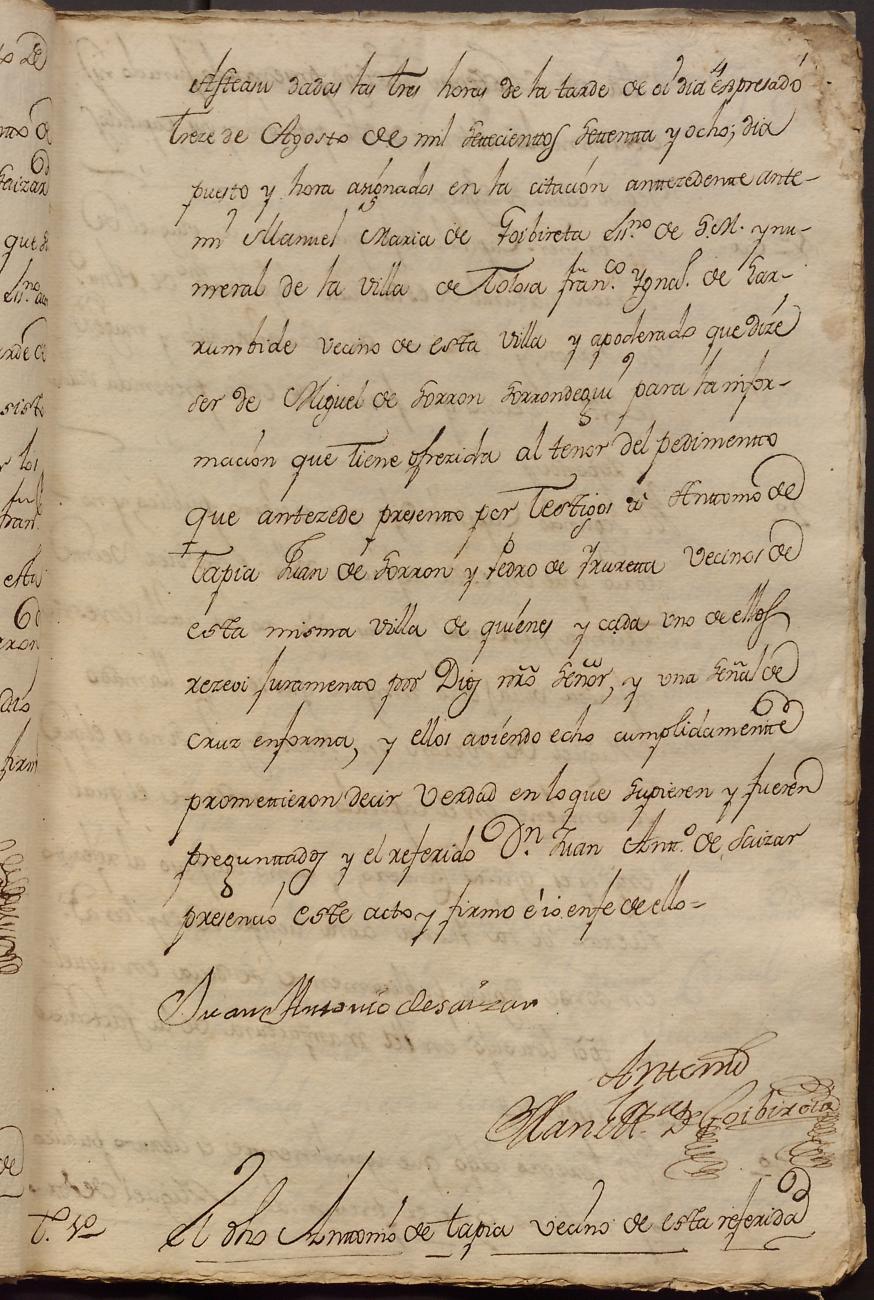 Asteasu dadas las tres horas de la tarde de el dia espresado
treze de Agosto de mil settecienttos settentta y ocho; dia
puesto y hora asignados en la citación anttezedentte ante-
mi Manuel Maria de Goibireta ess.no de S.M. y nu-
meral de la villa de Tolosa fran.co Ygna.l de Lar-
rumbide vecino de esta villa y apoderado que dize
ser de Miguel de Sorron Sorrondegui para la infor-
mación que tiene ofrezida al tenor del pedimentto
que antezede presentto por testigos à Anttonio de
tapia Juan de Sorron y Pedro de Yruretta vecinos de
esta misma villa de quienes y cada uno de ellos
rezevi juramentto por Dios nrõ señor, y una señal de
cruz enforma, y ellos aviendo echo cumplidamentte
promettieron decir verdad en lo que supieren y fueren
pregunttados y el referido Dn. Juan Antt.o de Saizar
presenció este acto y firmo é io enfe de ello=
Juan Antonio de saizar
Antemi
Man.l M.a De Goibireta
T.o 1o
El dho Anttonio de tapia vecino de esta referida